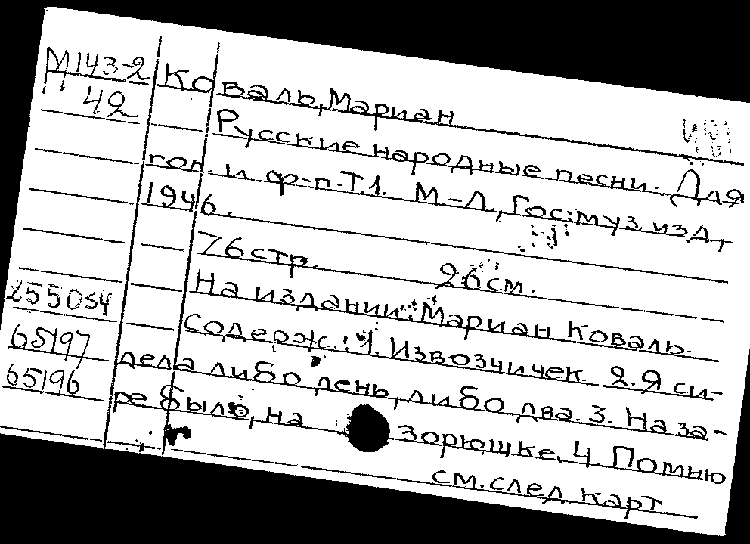 М143-2
42
Коваль, Мариан
Русские народные песни. Для
гол. и ф-п. Т.1. М.-Л, Гос. муз. изд,
1946.
76 стр. 26 см.
На издании: Мариан Коваль.
Содерж.: 1. Извозчичек 2. Я си-
дела либо день, либо два. 3. На за-
ре было, на зорюшке. 4. Помню
см. след карт
255054
65197
65196